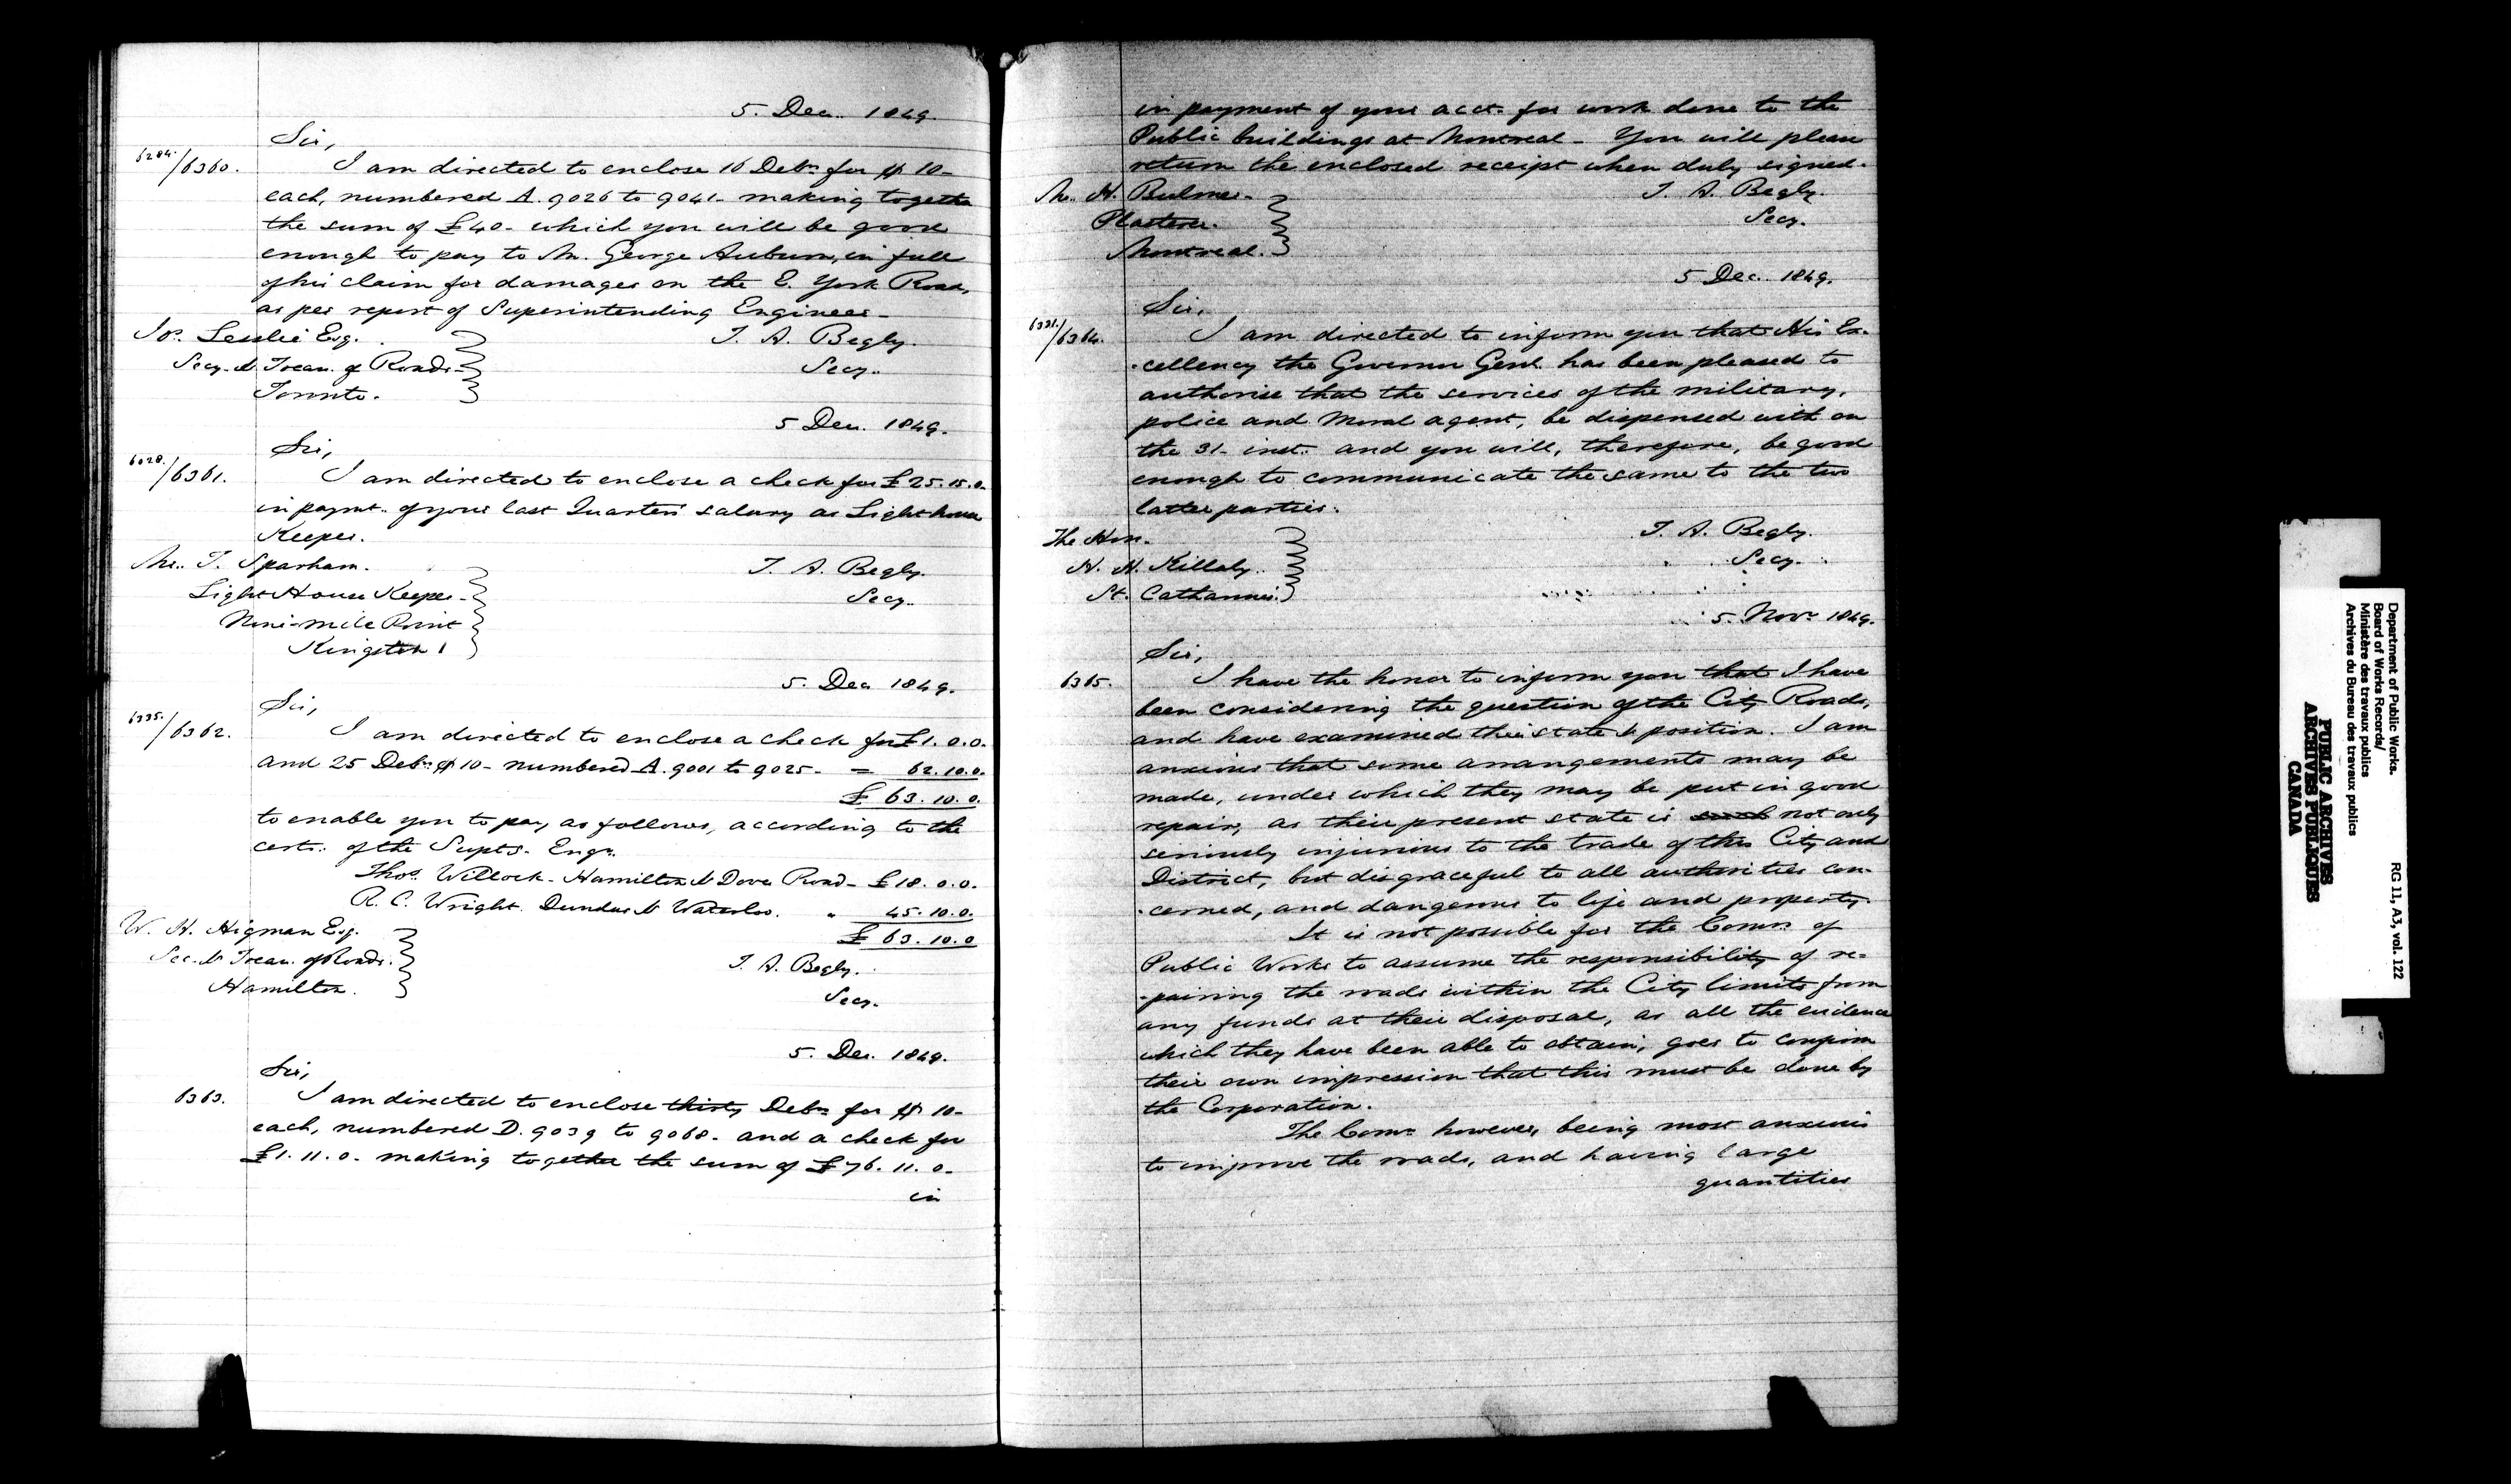 5. Dec. 1849.
Sir,
6284./6360. I am directed to enclose 16 Debs. for $10-
each, numbered A. 9026 to 9041- making together
the sum of £40- which you will be good
enough to pay to Mr. George Auburn, in full
of his claim for damages on the E. York Road,
as per report of Superintending Engineer-
Js. Lesslie Esq. T. A. Begly.
Secy. & Treas. of Roads- Secy.
Toronto.
5 Dec. 1849.
Sir,
6028./6361. I am directed to enclose a check for £25.15.0.
in paymt. of your last Quarters' salary as Light house
Keeper.
Mr. T. Sparham. T. A. Begly.
Light House Keeper- Secy.
Nine-mile Point
Kingston
5. Dec 1849.
Sir,
6335./6362. I am directed to enclose a check for £1.0.0.
and 25 Debs. $10- numbered A. 9001 to 9025- = 62.10.0.
£63.10.0.
to enable you to pay as follows, according to the
certs. of the Supts. Engr.
Thos. Willock- Hamilton & Dover Road- £18.0.0.
R. C. Wright. Dundas & Waterloo. " 45.10.0.
W. H. Higman Esq. £63.10.0
Sec. & Treas. of Roads. T. A. Begly.
Hamilton. Secy.
5. Dec. 1849.
Sir,
6363. I am directed to enclose thirty Debs for $10-
each, numbered D. 9039 to 9068- and a check for
£1.11.0- making together the sum of £76.11.0-
in
in payment of your acct. for work done to the
Public buildings at Montreal- You will please
return the enclosed receipt when duly signed.
Mr. H. Bulmer- T. A. Begly.
Plasterer. Secy.
Montreal.
5 Dec. 1849.
Sir,
6331./6364. I am directed to inform you that His Ex-
-cellency the Governor Genl. has been pleased to
authorise that the services of the military,
police and Moral agent, be dispensed with on
the 31- inst. and you will, therefore, be good
enough to communicate the same to the two
latter parties.
The Hon. T. A. Begly.
H. H. Killaly. Secy.
St. Catharines.
5. Novr. 1849.
Sir,
6365. I have the honor to inform you that I have
been considering the question of the City Roads,
and have examined their state & position. I am
anxious that some arrangements may be
made, under which they may be put in good
repair, as their present state is such not only
seriously injurious to the trade of this City and
District, but disgraceful to all authorities con-
-cerned, and dangerous to life and property.
It is not possible for the Comrs. of
Public Works to assume the responsibility of re-
-pairing the roads within the City limits from
any funds at their disposal, as all the evidence
which they have been able to obtain, goes to confirm
their own impression that this must be done by
the Corporation.
The Comrs. however, being most anxious
to improve the roads, and having large
quantities
Department of Public Works.
Board of Works Records/
Ministère des travaux publics
Archives du Bureau des travaux publics
RG 11, A3, vol. 122
PUBLIC ARCHIVES
ARCHIVES PUBLIQUES
CANADA